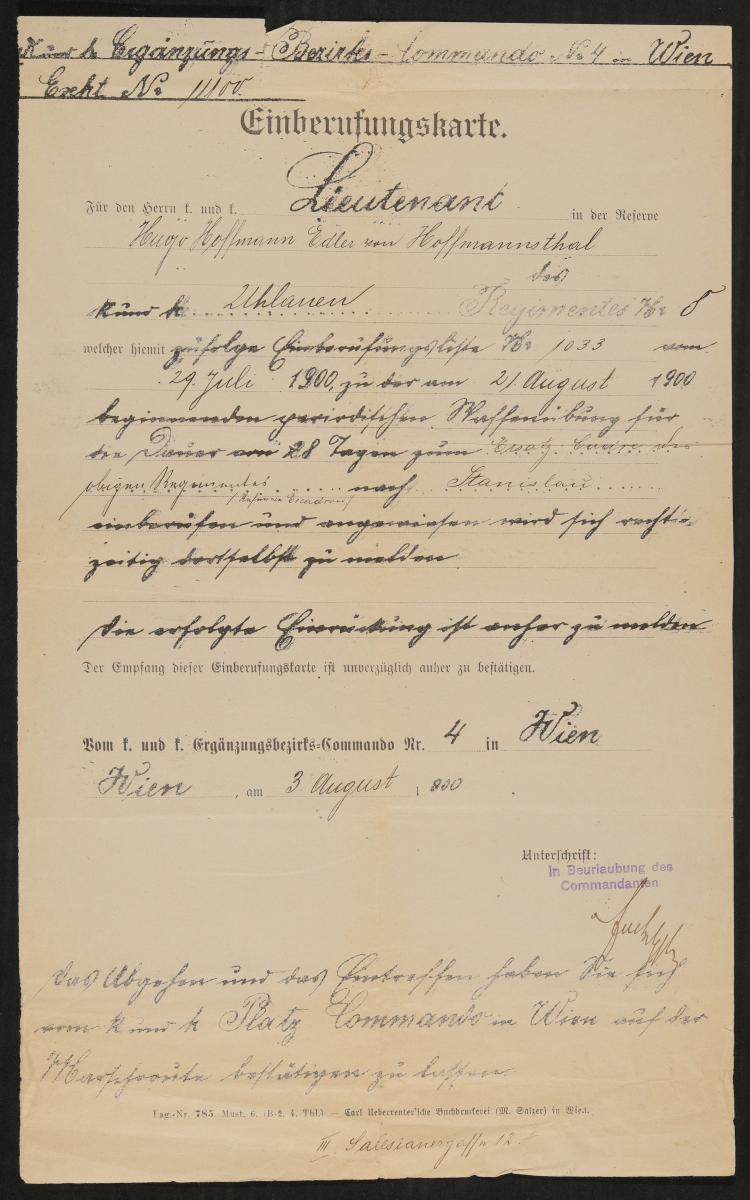 K und k Ergänzungs-Bezirks-Commando No 4 in Wien
Exekt. No 11100
Einberufungskarte.
Für den Herrn k. und k. Lieutenant in der Reserve
Hugo Hoffmann Edler von Hoffmannsthal
des
k und k Uhlanen Regimentes No 8
welcher hiemit zufolge Einberufungsliste No 1033 vom
29. Juli 1900, zu der am 21. August 1900
beginnenden periodischen Waffenübung für
die Dauer von 28 Tagen zum Ersatz Cadre des
obigen Regimentes nach Stanislau
(Reserve Escadron)
einberufen und angewiesen wird sich recht-
zeitig dortselbst zu melden
Die erfolgte Einrückung ist anher zu melden
Der Empfang dieser Einberufungskarte ist unverzüglich anher zu bestätigen.
Vom k. und k. Ergänzungsbezirks-Commando Nr. 4 in Wien
Wien, am 3. August 1900.
Unterschrift:
In Beurlaubung des
Commandanten
Das Abgehen und das Eintreffen haben Sie sich
vom k und k Platz Commando in Wien auf der
Marschroute bestätigen zu lassen.
Lag.-Nr. 785. Must. 6. (B-2. 4. Thl.) — Carl Ueberreuter'sche Buchdruckerei (M. Salzer) in Wien.
III. Salesianergasse 12.